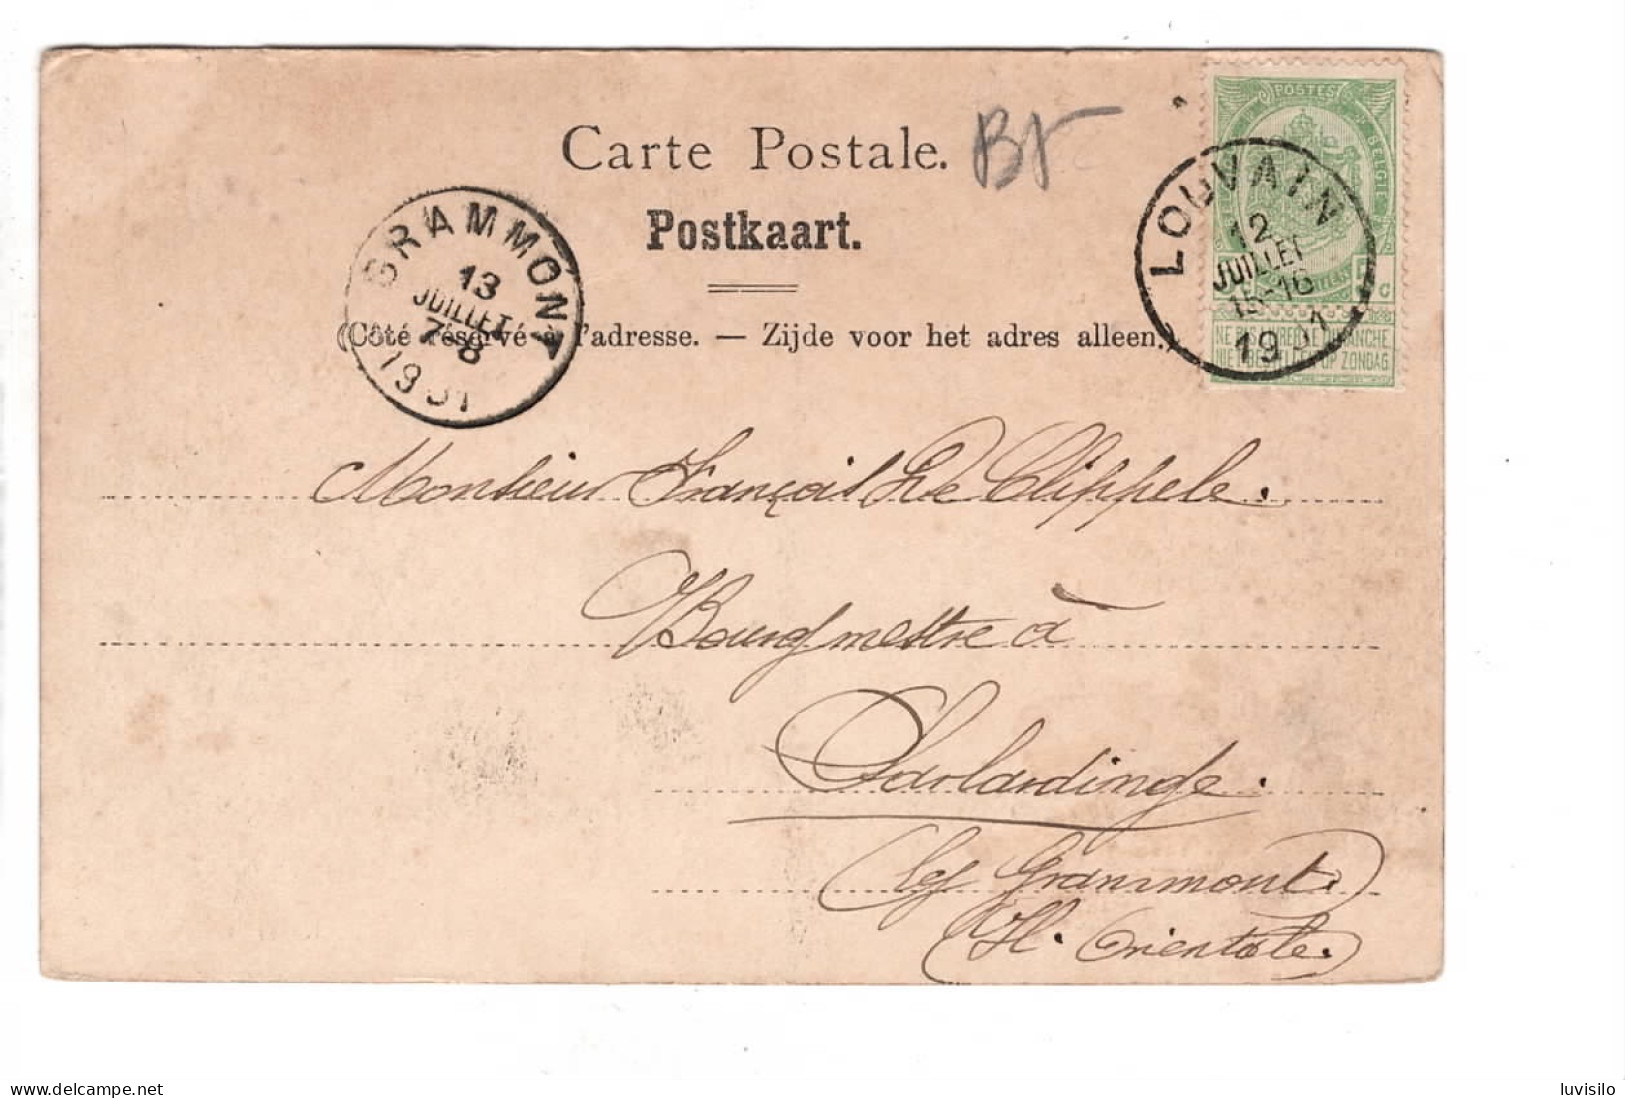 Carte Postale.
Postkaart.
(Côté réservé à l'adresse. — Zijde voor het adres alleen.)
GRAMMONT
13
JUILLET
7-8
1901
POSTES
BELGIE
LOUVAIN
12
JUILLET
15-16
1901
NE PAS LIVRER LE DIMANCHE
NIET BESTELLEN OP ZONDAG
Monsieur François De Clippele.
Bourgmestre à
Sarlardinge.
(lez Grammont.)
(Fl. Orientale.)
delcampe.net
luvisilo